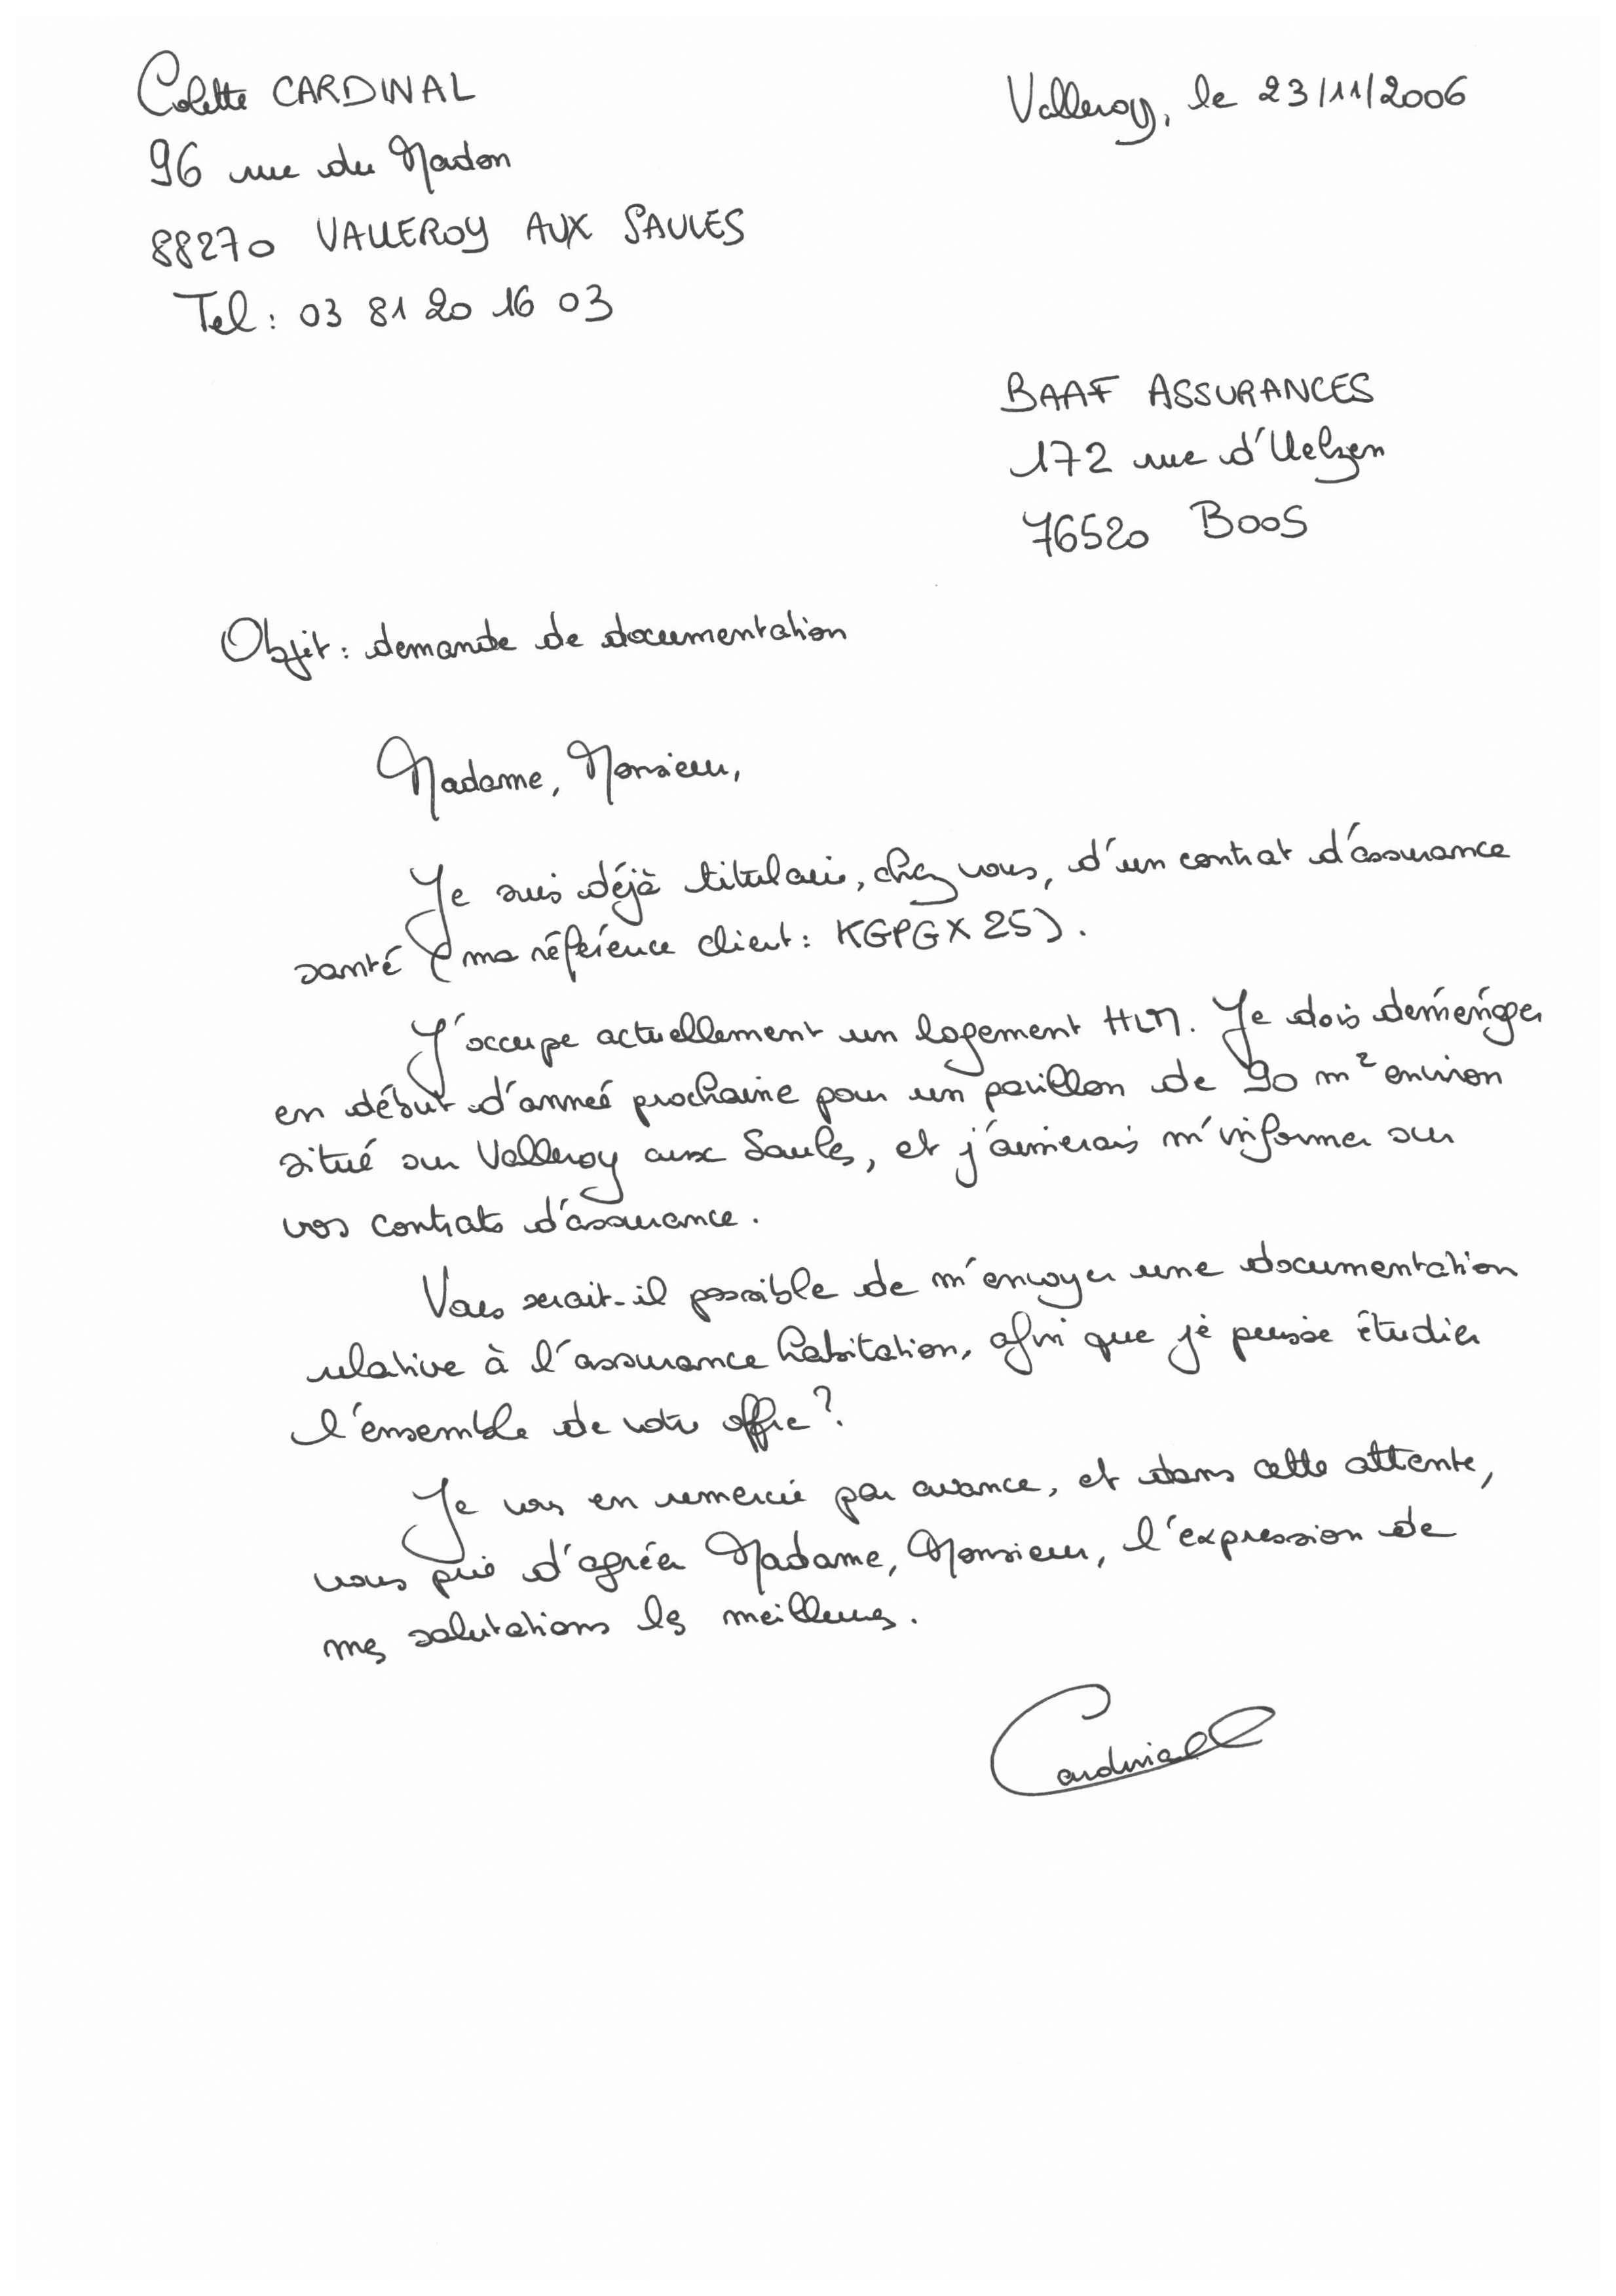 Colette CARDINAL
Valleroy, le 23/11/2006
96 rue du Madon
88270 VALLEROY AUX SAULES
Tel : 03 81 20 16 03
BAAF ASSURANCES
172 rue d'Uelzen
76520 BOOS
Objet : demande de documentation
Madame, Monsieur,
Je suis déjà titulaire, chez vous, d'un contrat d'assurance
santé (ma référence client : KGPGX25).
J'occupe actuellement un logement HLM. Je dois déménager
en début d'année prochaine pour un pavillon de 90 m² environ
situé sur Valleroy aux Saules, et j'aimerais m'informer sur
vos contrats d'assurance.
Vous serait-il possible de m'envoyer une documentation
relative à l'assurance habitation, afin que je puisse étudier
l'ensemble de votre offre ?
Je vous en remercie par avance, et dans cette attente,
vous prie d'agréer Madame, Monsieur, l'expression de
mes salutations les meilleures.
Cardinal